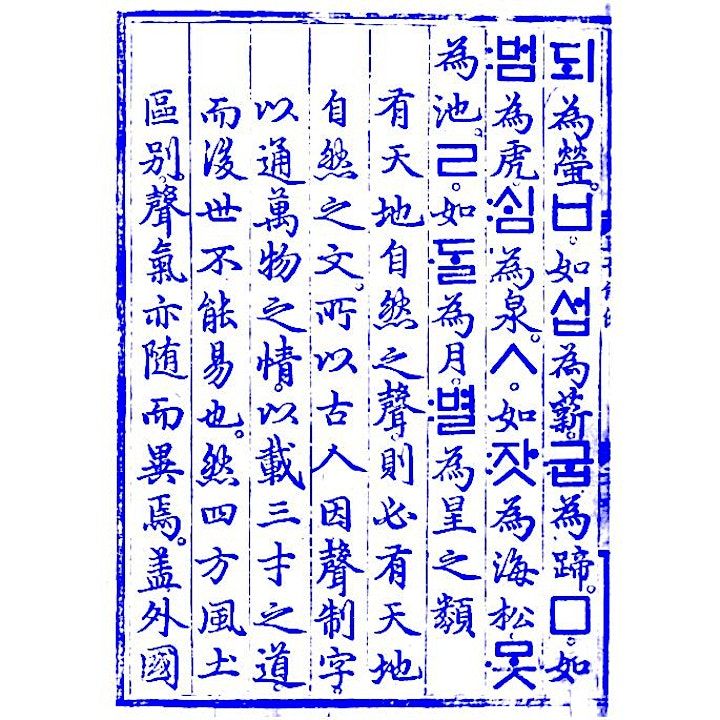 되為螢。ㅂ。如섭為薪。굽為蹄。ㅁ。如
:범為虎。:심為泉。ㅅ。如:잣為海松。·못
為池。ㄹ。如·ᄃᆞᆯ為月。:별為星之類
有天地自然之聲。則必有天地
自然之文。所以古人因聲制字。
以通萬物之情。以載三才之道。
而後世不能易也。然四方風土
區别。聲氣亦随而異焉。盖外國